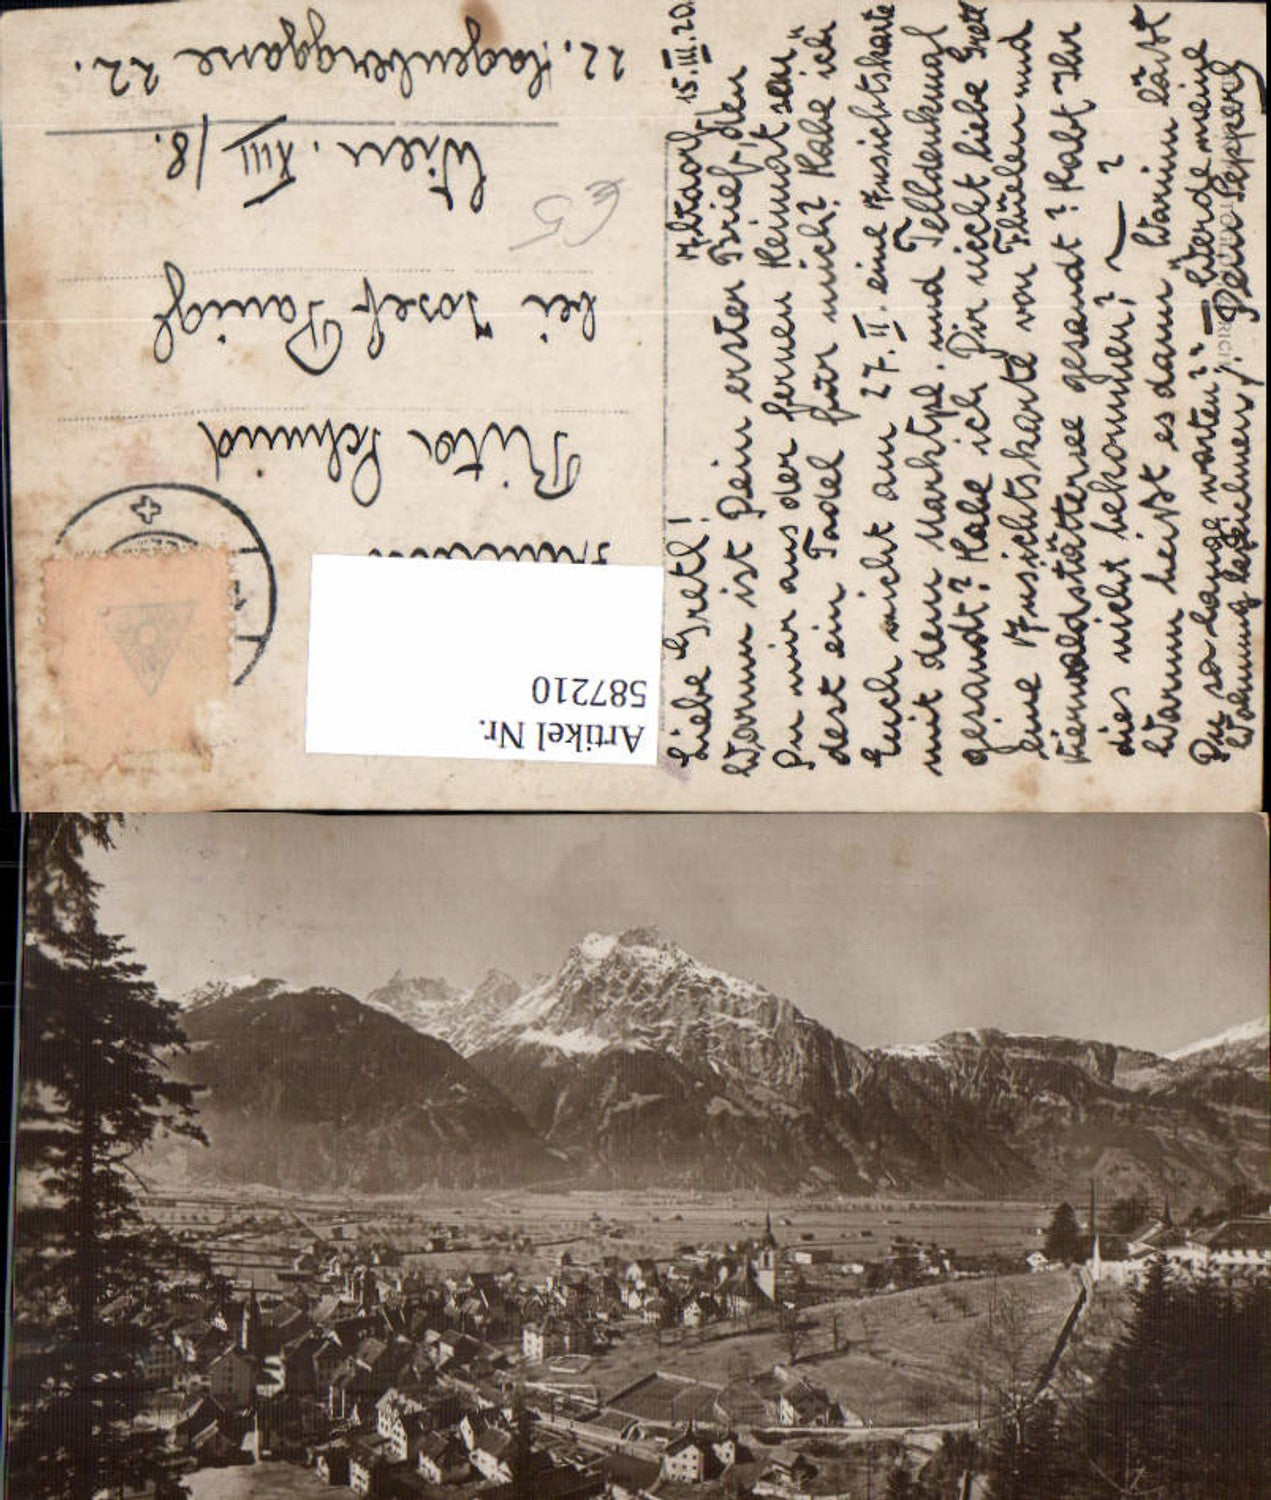 Altdorf, 15.III.20.
Liebe Gretl!
Warum ist Dein erster Brief, den
Du mir aus der fernen Heimat sen„
dest ein Tadel für mich? Habe ich
Euch nicht am 27.II. eine Ansichtskarte
mit dem Marktpl. und Telldenkmal
gesandt? Habe ich Dir nicht liebe Gretl
eine Ansichtskarte von Flüelen und
Vierwaldstättersee gesandt? Habt Ihr
dies nicht bekommen? — ?
Warum heißt es dann „Warum läßt
Du so lange warten?" — Werde meine
Wohnung bezeichnen! Dein Pepperl
Rita Schmid
bei Josef Panigl
Wien. XIII/8.
22. Hagenberggasse 22.
€5
Artikel Nr.
587210